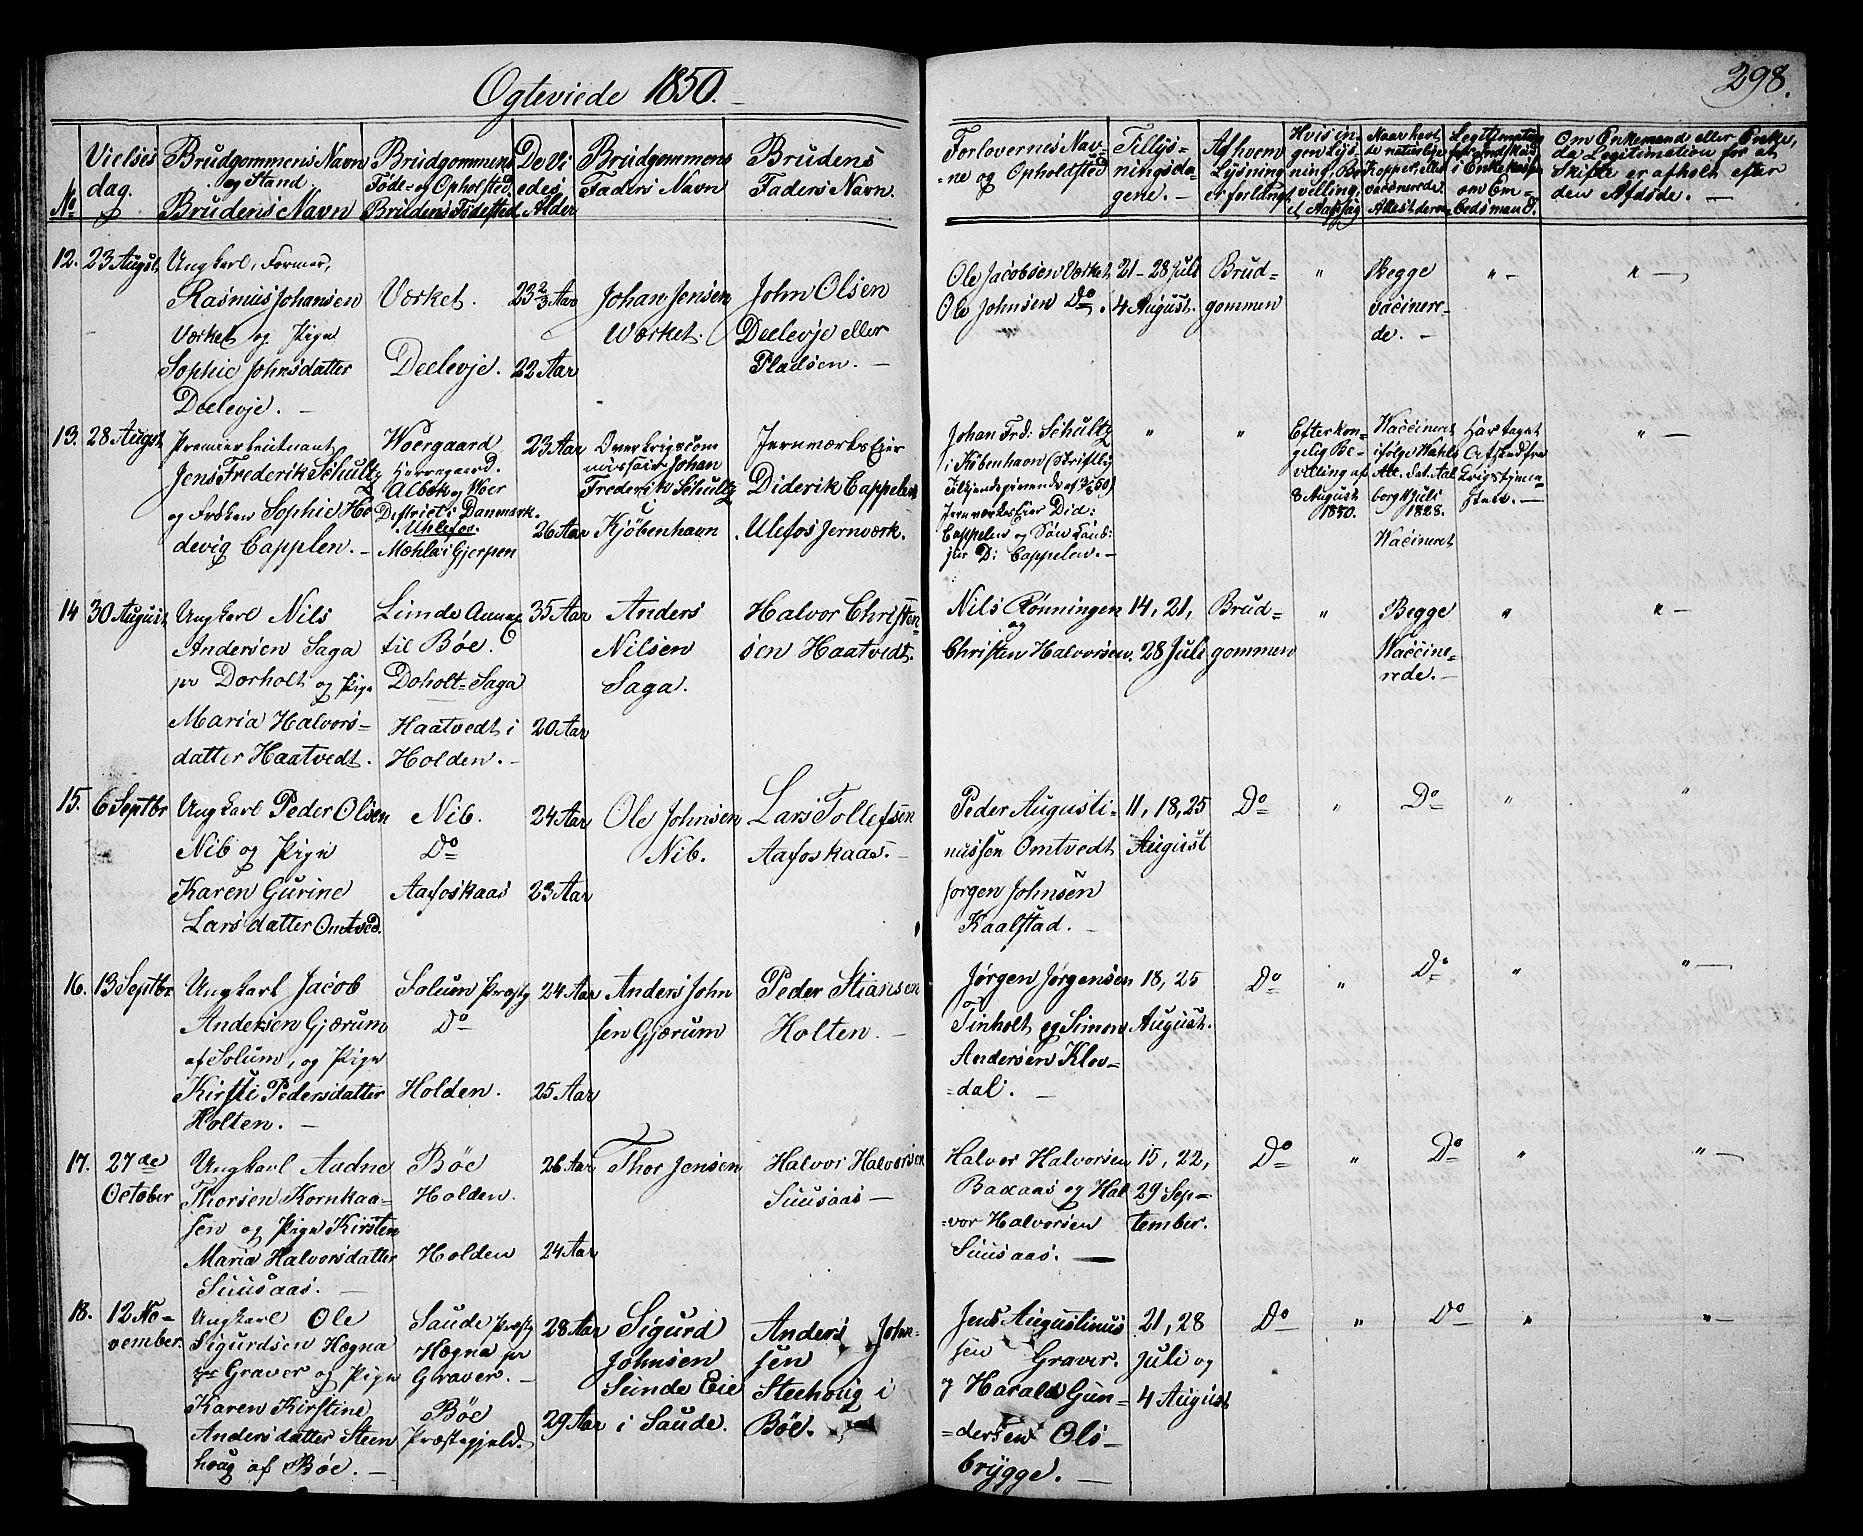 Ogteviede 1850.
298.
No
Vielses
dag.
Brudgommens Navn
og Stand
Brudens Navn
Brudgommens
Føde- og Opholsted
Brudens Fødested
De Vi
edes
Alder
Brudgommens
Faders Navn
Brudens
Faders Navn.
Forlovernes Nav-
-ne og Opholdsted
Tillys-
ningsda-
gene.
Af hvem
Lysning
er forlangt
Om Enkemand eller Enke,
da Legitimation for at
Skifte er afholt efter
den Afdøde.
12. 23 August
Ungkarl, Former,
Rasmus Johansen
Værket og Pige
Sophie Johnsdatter
Deelevje.
Værket.
Deelevje.
23 2/3 Aar
22 Aar
Johan Jensen
Værket.
John Olsen
Deelevje eller
Pladsen.
Ole Jacobsen Værket
Ole Johnsen Do.
21-28 Juli
4 August.
Brud-
gommen
"
Begge
vaccinere-
de.
"
"
13. 28 August
Premierleutnant
Jens Frederik Schultz
og Frøken Sophie He
devig Cappelen.
Woergaard
Herregaard.
Albek og Woer
District i Danmark.
Uhlefos.
Mæhla i Gjerpen
23 Aar
26 Aar
Overkrigscom
missair Johan
Frederik Schultz
i Kjøbenhavn
Jernværks Eier
Diderik Cappelen
Ulefos Jernværk.
Johan Frd: Schultz
i København (Skriftlig
Jernværks Eier Did:
Cappelen og Søn Cand:
jur D: Cappelen.
"
"
Efter kon-
gelig Be-
villing af
8 August
1850.
Vaccineret
ifølge
Att. dat. Aal
borg Juli
1828.
Vaccineret
Har taget
Afsked fra
Krigstjene-
sten.
"
14 30 August
Ungkarl Nils
Andersen Saga
pr Dorholt og Pige
Maria Halvors-
datter Haatvedt.
Lunde Annex
til Bøe.
Doholt-Saga
Haatvedt i
Holden.
35 Aar
20 Aar
Anders
Nilsen
Saga.
Halvor Christen-
sen Haatvedt.
Nils Rønningen
og
Christen Halvorsen.
14, 21,
28 Juli
Brud-
gommen
"
Begge
Vaccine-
rede.
"
"
15. 6 Septbr
Ungkarl Peder Olsen
Nib og Pige
Karen Gurine
Larsdatter Omtved.
Nib.
Do
Aafoskaas
24 Aar
23 Aar
Ole Johnsen
Nib.
Lars Tollefsen
Aafoskaas.
Peder Augusti-
nussen Omtvedt
Jørgen Johnsen
Kaalstad.
11, 18, 25
August
Do
"
Do
"
"
16. 13 Septbr.
Ungkarl Jacob
Andersen Gjærum
af Solum, og Pige
Kirsti Pedersdatter
Holten.
Solum Præstg
Do
Holden.
24 Aar
25 Aar
Anders John
sen Gjærum
Peder Stiansen
Holten.
Jørgen Jørgensen
Tinholt og Simon
Andersen Klov-
-dal.
18, 25
August.
Do
"
Do
"
"
17. 27de
October
Ungkarl Aadne
Thorsen Kornkaa-
sen og Pige Kirsten
Maria Halvorsdatter
Suusaas.
Bøe
Holden.
Holden
26 Aar
24 Aar
Thor Jensen
Halvor Halvorsen
Suusaas
Halvor Halvorsen
Baxaas og Hal
-vor Halvorsen
Suusaas.
15, 22,
29 Sep-
tember.
Do
"
Do
"
"
18. 12 No-
vember.
Ungkarl Ole
Sigurdsen Hægna
pr Graver og Pige
Karen Kirstine
Andersdatter Steen
houg af Bøe.
Saude Præstg
Hægna pr
Graver.
Bøe
Præstegjeld.
28 Aar
29 Aar
Sigurd
Johnsen
Sunde Eie
i Saude.
Anders John-
sen
Steehoug i
Bøe.
Jens Augustinus
sen Graver.
og Harald Gun-
-dersen Ols-
brygge.
21, 28
Juli og
4 August
Do
"
Do
"
"